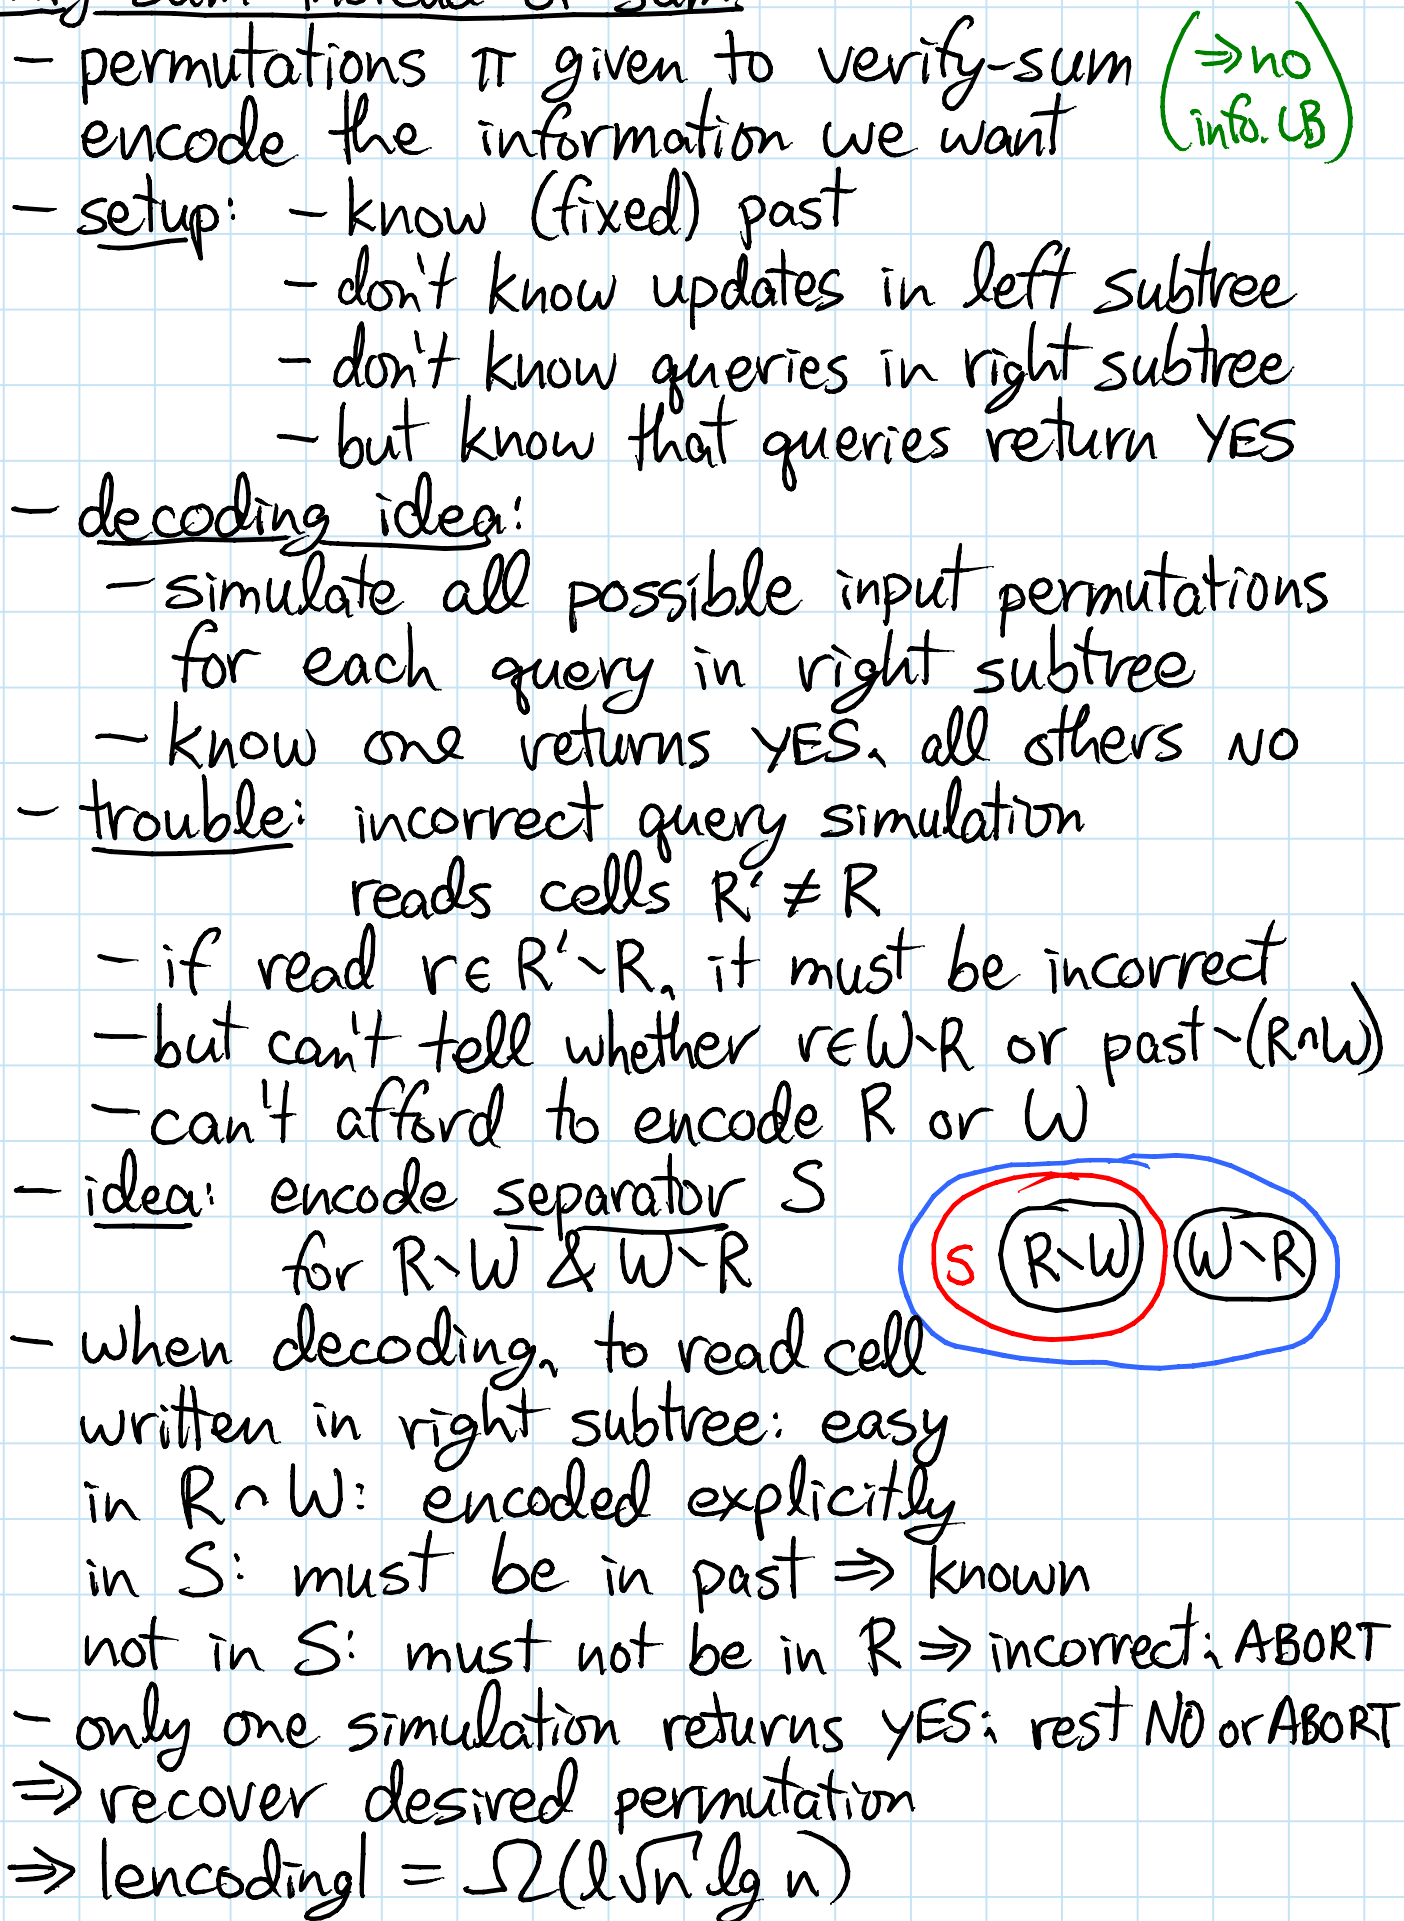 – permutations π given to verify-sum (⇒ no
encode the information we want info. LB)
– setup: – know (fixed) past
– don't know updates in left subtree
– don't know queries in right subtree
– but know that queries return YES
– decoding idea:
– simulate all possible input permutations
for each query in right subtree
– know one returns YES, all others NO
– trouble: incorrect query simulation
reads cells R' ≠ R
– if read r∈R'∖R, it must be incorrect
– but can't tell whether r∈W∖R or past∖(R∩W)
– can't afford to encode R or W
– idea: encode separator S
for R∖W & W∖R
S R∖W W∖R
– when decoding, to read cell
written in right subtree: easy
in R∩W: encoded explicitly
in S: must be in past ⇒ known
not in S: must not be in R ⇒ incorrect; ABORT
– only one simulation returns YES; rest NO or ABORT
⇒ recover desired permutation
⇒ |encoding| = Ω(l√n lg n)